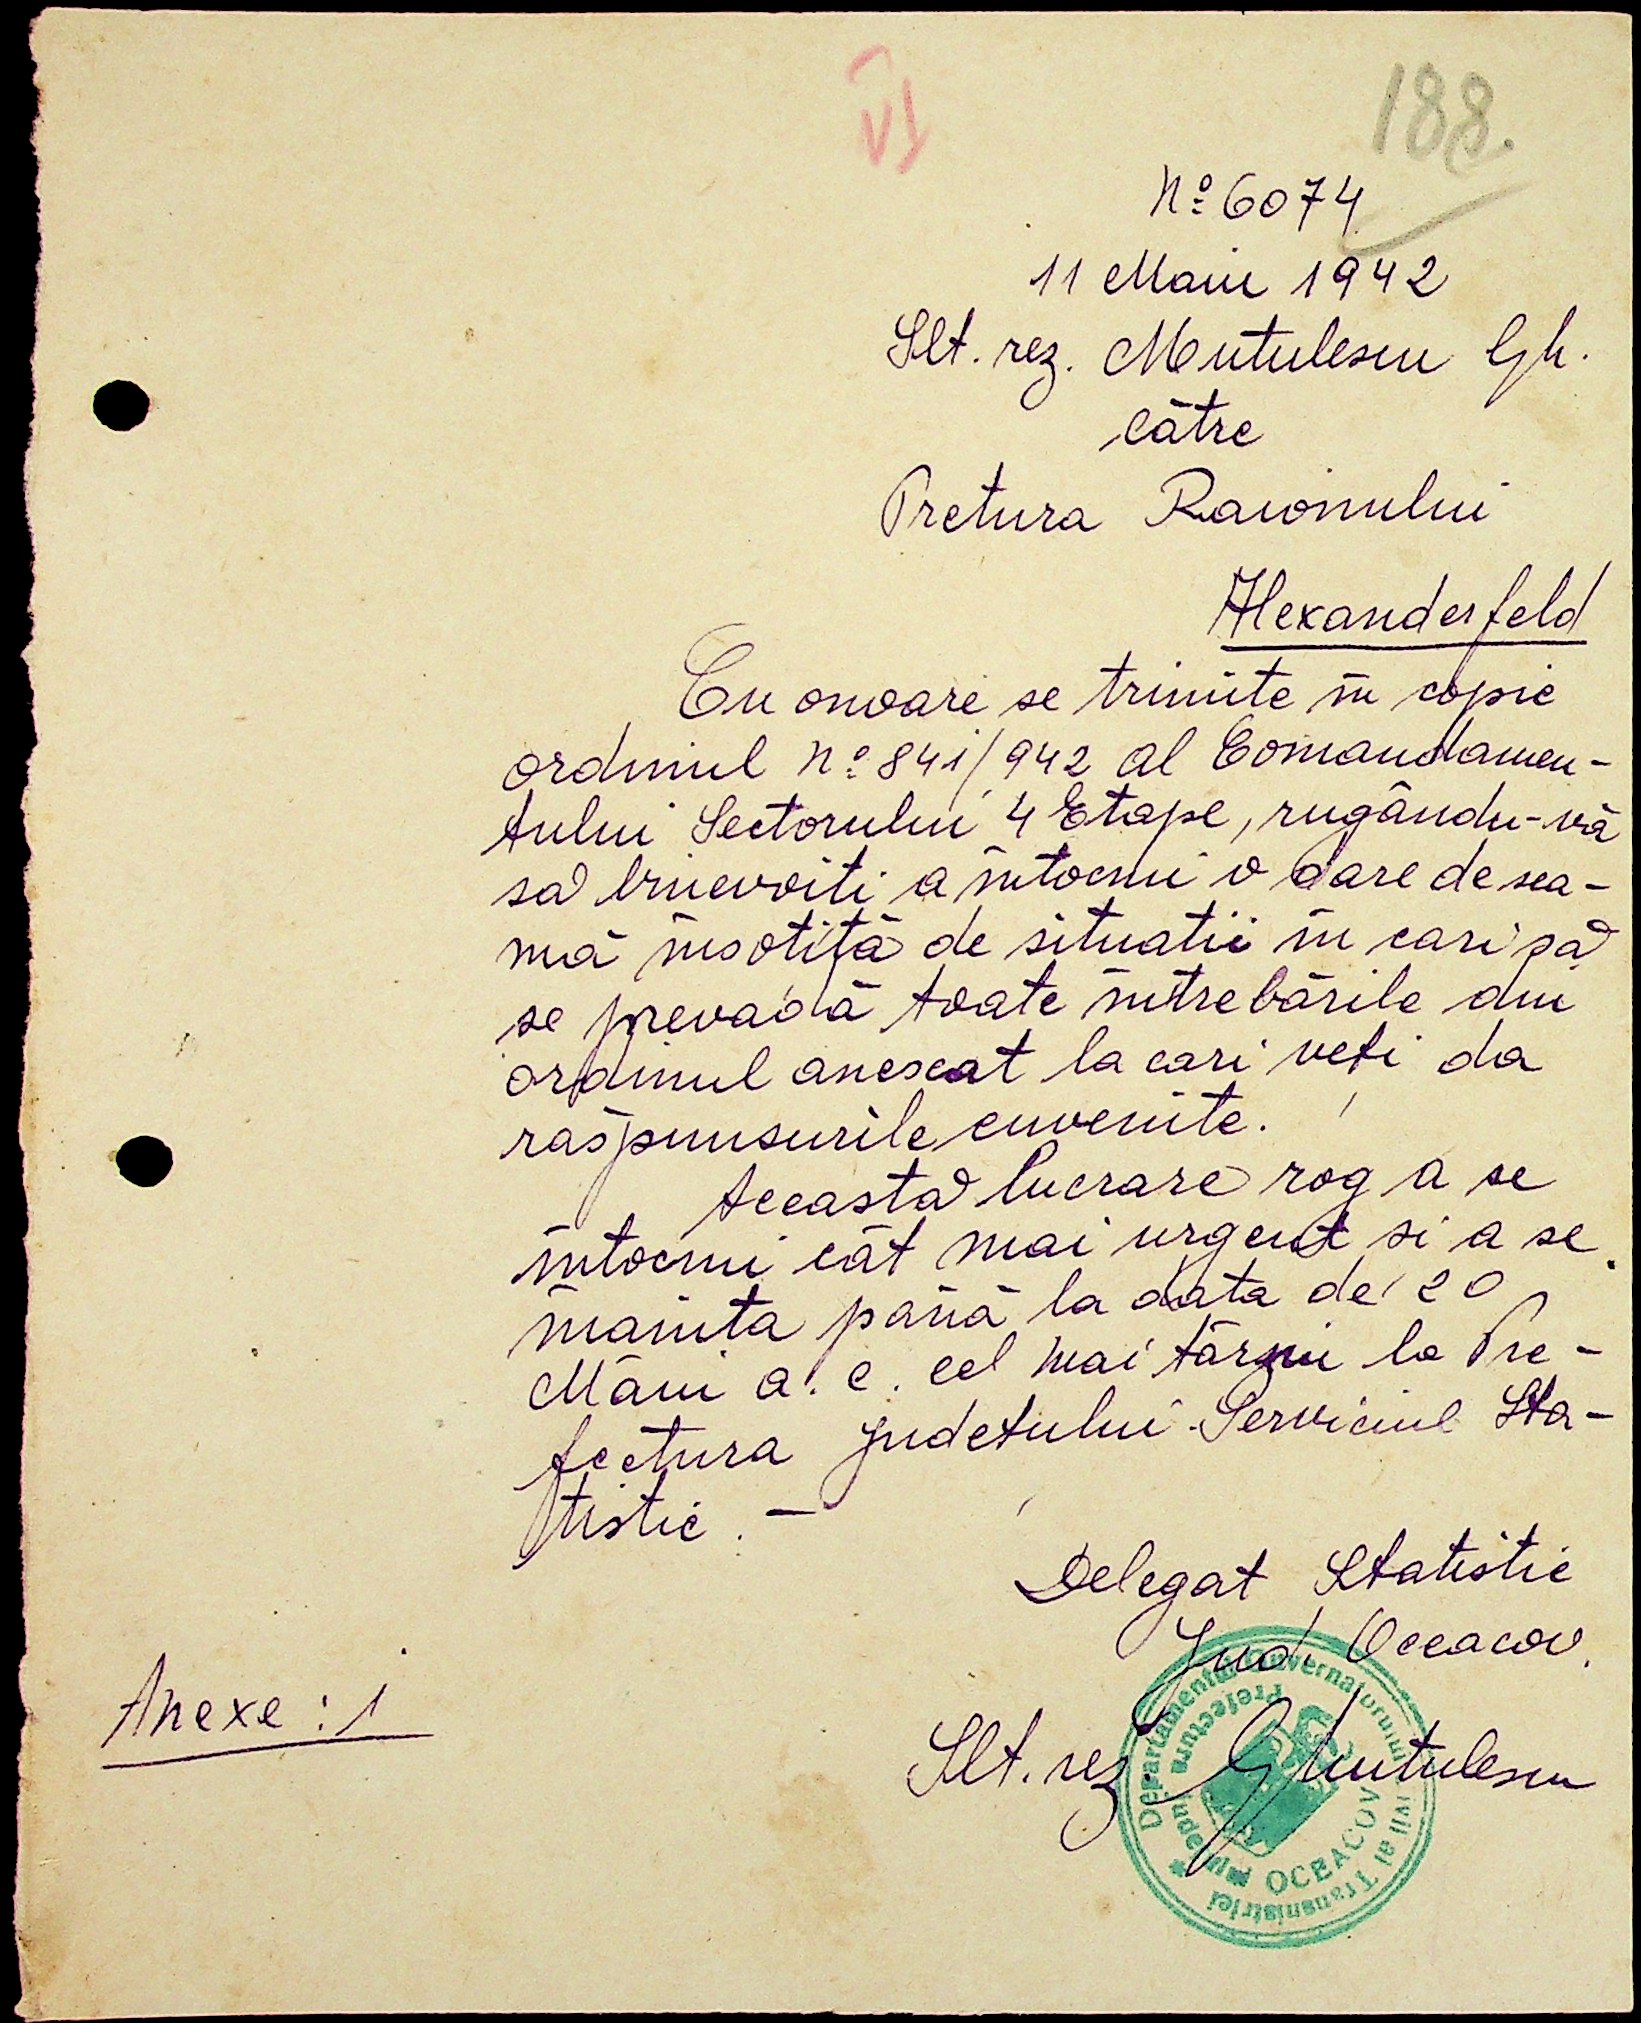 VI
188.
No 6074
11 Maiu 1942
Slt. rez. Mutulescu Gh.
către
Pretura Raionului
Alexanderfeld
Cu onoare se trimite în copie
ordinul No 841/942 al Comandamen-
tului Sectorului 4 Etape, rugându-vă
să binevoiti a întocmi o dare de sea-
mă însotită de situatii în cari să
se prevadă toate întrebările din
ordinul anexat la cari veti da
răspunsurile cuvenite.
Această lucrare rog a se
întocmi cât mai urgent si a se
înainta până la data de 20
Maiu a.c. cel mai târziu la Pre-
fectura Judetului Serviciul Sta-
tistic. -
Delegat Statistic
Jud. Oceacov.
Slt. rez. GMutulescu
Anexe: 1
Departamentul Guvernatorului Civil al Transnistriei
Prefectura Județului
OCEACOV